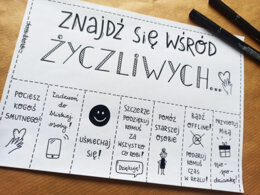 ZNAJDŹ SIĘ WŚRÓD
ŻYCZLIWYCH...
POCIESZ
KOGOŚ
SMUTNEGO!
Zadzwoń
do
bliskiej
osoby!
uśmiechaj
się!
SZCZERZE
PODZIĘKUJ
KOMUŚ
ZA
WSZYSTKO
CO ROBI!
Dziękuję!
POMÓŻ
STARSZEJ
OSOBIE
BĄDŹ
OFFLINE!
PODARUJ
KOMUŚ
CZAS
W REALU!
PRZYGOTUJ
MIŁĄ
nie-
spo-
dziankę!